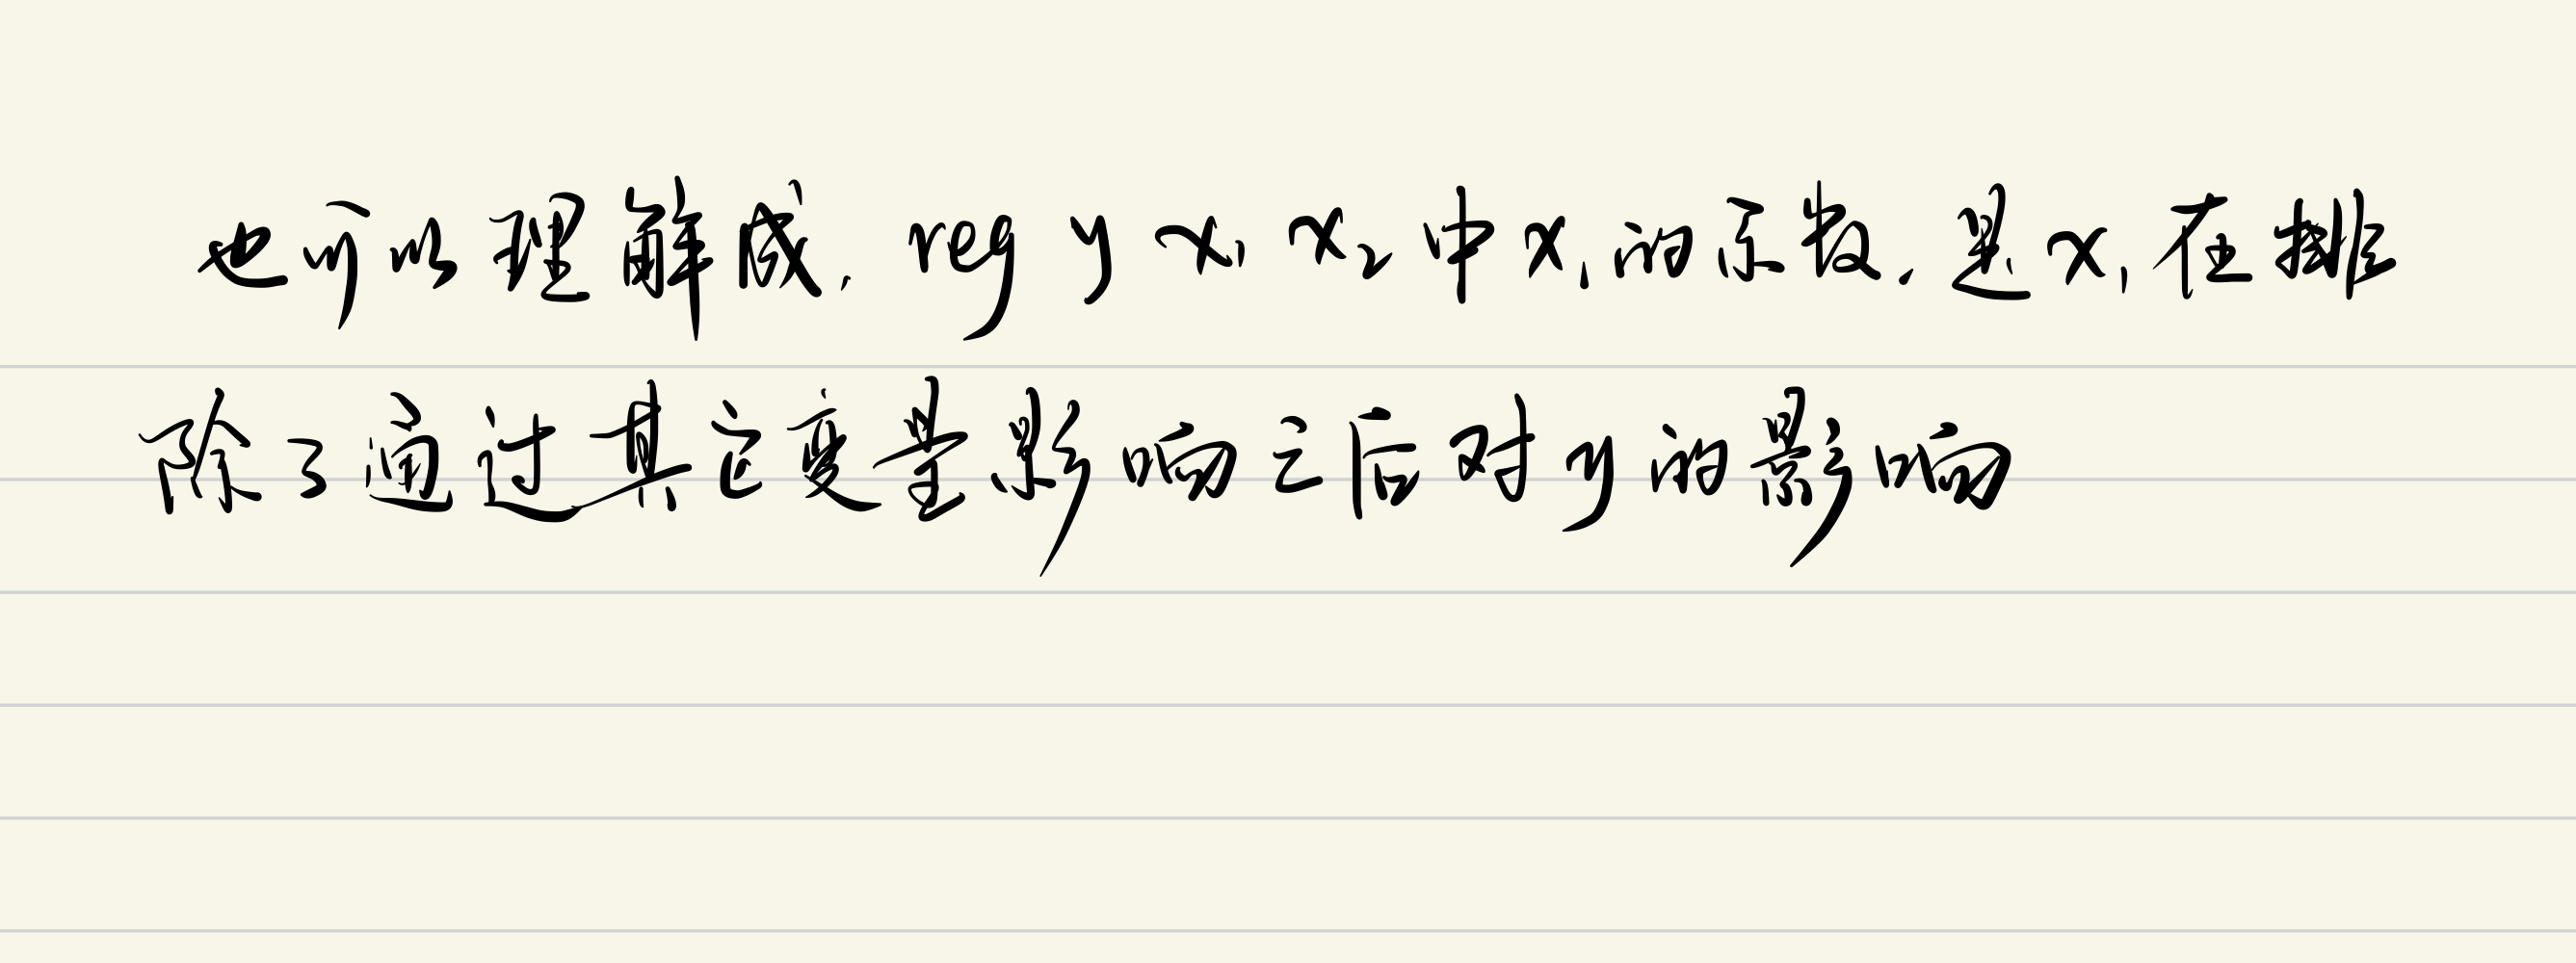 也可以理解成, reg y x₁ x₂ 中 x₁ 的系数, 是 x₁ 在排
除了通过其它变量影响之后对 y 的影响